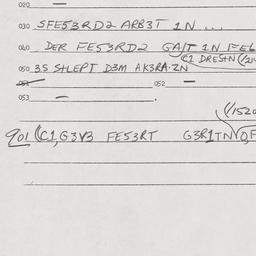 020 —
030 SFE53RD2 ARB3T 1N ...
040 DER FE53RD2 GAIT 1N FEL
(C1 DRES+N (/21
050 3S SHLEPT D3M AK3RA. ZN
051 052 —
053 — .
(/152
901 (C1,G3V3 FE53RT G3R1TN V0,F